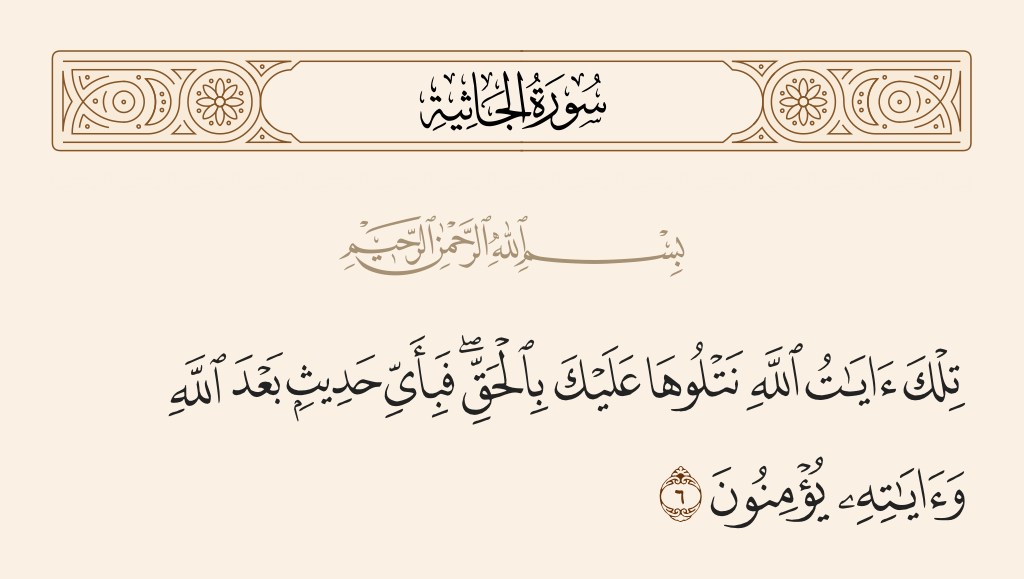 سُورَةُ الجَاثِيَةِ
بِسْمِ ٱللَّهِ ٱلرَّحْمَٰنِ ٱلرَّحِيمِ
تِلْكَ ءَايَٰتُ ٱللَّهِ نَتْلُوهَا عَلَيْكَ بِٱلْحَقِّ ۖ فَبِأَىِّ حَدِيثٍۭ بَعْدَ ٱللَّهِ
وَءَايَٰتِهِۦ يُؤْمِنُونَ ٦